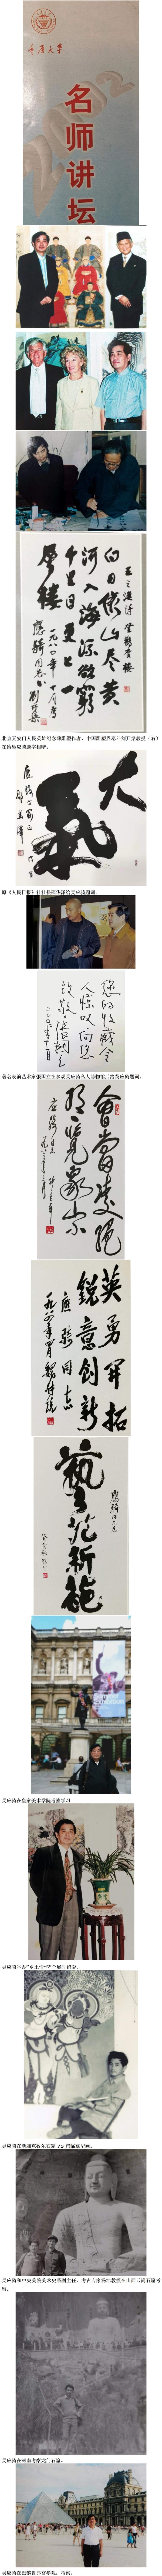 重庆大学
名师讲坛
王之涣诗登鹳雀楼
白日依山尽黄
河入海流欲穷
千里目更上一
层楼
一九八〇年十月为
应骑同志 刘开渠
北京天安门人民英雄纪念碑雕塑作者,中国雕塑界泰斗刘开渠教授(右)
在给吴应骑题字相赠。
大气
原《人民日报》社社长邵华泽给吴应骑题词。
您的收藏令
人惊叹,向您
致敬 张国立
著名表演艺术家张国立在参观吴应骑私人博物馆后给吴应骑题词。
会当凌绝
顶一览众山
英勇开拓
锐意创新
应骑同志
艺苑新葩
吴应骑在皇家美术学院考察学习
吴应骑举办“乡土情怀”个展时留影。
吴应骑在新疆克孜尔石窟 75 窟临摹壁画。
吴应骑和中央美院美术史系副主任,考古专家汤池教授在山西云岗石窟考
察。
吴应骑在河南考察龙门石窟。
吴应骑在巴黎鲁弗宫参观、考察。